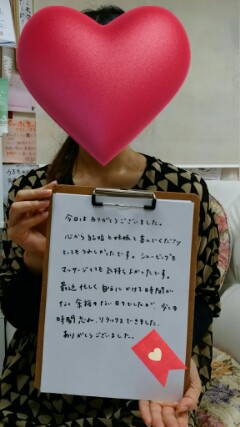 今日は ありがとうございました。
心から 結婚と妊娠と 喜んでいただいて
とってもうれしかったです。シェービングも
マッサージもとても気持ちよかったです。
最近 忙しく 自分に かける 時間が
ない 余裕のない 日々でしたが、今日の
時間 忘れ、リラックスできました。
ありがとうございました。